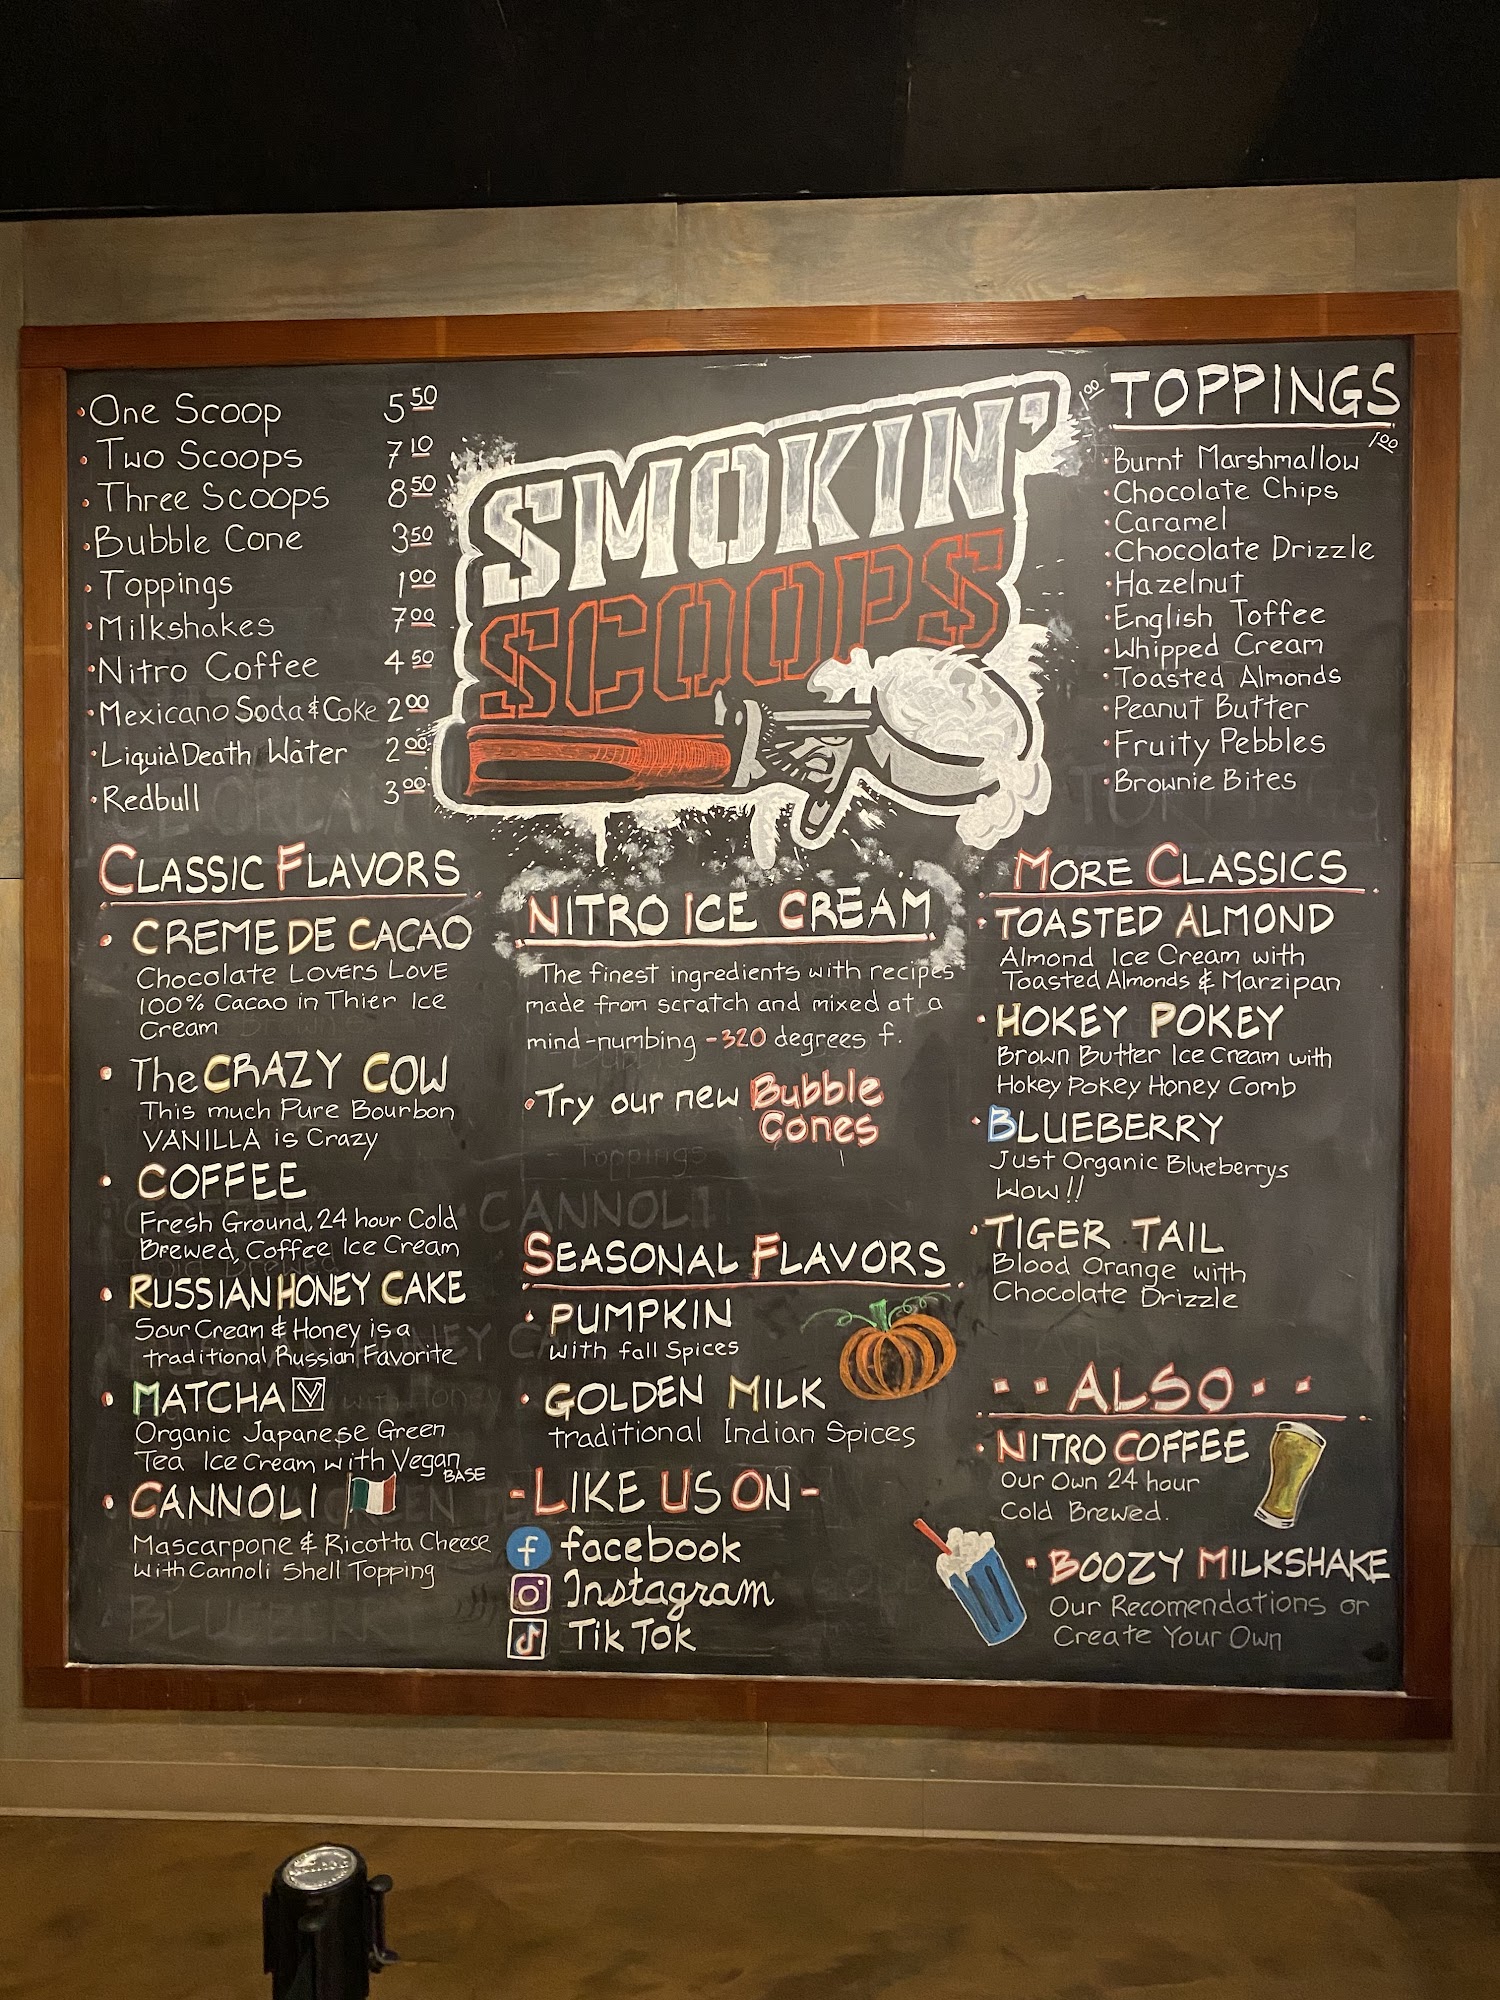 One Scoop 5 50
Two Scoops 7 10
Three Scoops 8 50
Bubble Cone 3 50
Toppings 1 00
Milkshakes 7 00
Nitro Coffee 4 50
Mexicano Soda & Coke 2 00
Liquid Death Water 2 00
Redbull 3 00
SMOKIN'
SCOOPS
1 00 TOPPINGS
1 00
Burnt Marshmallow
Chocolate Chips
Caramel
Chocolate Drizzle
Hazelnut
English Toffee
Whipped Cream
Toasted Almonds
Peanut Butter
Fruity Pebbles
Brownie Bites
CLASSIC FLAVORS
CREME DE CACAO
Chocolate Lovers Love
100% Cacao in Thier Ice
Cream
The CRAZY COW
This much Pure Bourbon
VANILLA is Crazy
COFFEE
Fresh Ground, 24 hour Cold
Brewed, Coffee Ice Cream
RUSSIAN HONEY CAKE
Sour Cream & Honey is a
traditional Russian Favorite
MATCHA V
Organic Japanese Green
Tea Ice Cream with Vegan
BASE
CANNOLI
Mascarpone & Ricotta Cheese
with Cannoli Shell Topping
NITRO ICE CREAM
The finest ingredients with recipes
made from scratch and mixed at a
mind-numbing -320 degrees f.
Try our new Bubble
Cones
Toppings
CANNOLI
SEASONAL FLAVORS
PUMPKIN
with fall Spices
GOLDEN MILK
traditional Indian Spices
-LIKE US ON-
f facebook
Instagram
Tik Tok
MORE CLASSICS
TOASTED ALMOND
Almond Ice Cream with
Toasted Almonds & Marzipan
HOKEY POKEY
Brown Butter Ice Cream with
Hokey Pokey Honey Comb
BLUEBERRY
Just Organic Blueberrys
Wow!!
TIGER TAIL
Blood Orange with
Chocolate Drizzle
ALSO
NITRO COFFEE
Our Own 24 hour
Cold Brewed.
BOOZY MILKSHAKE
Our Recomendations or
Create Your Own